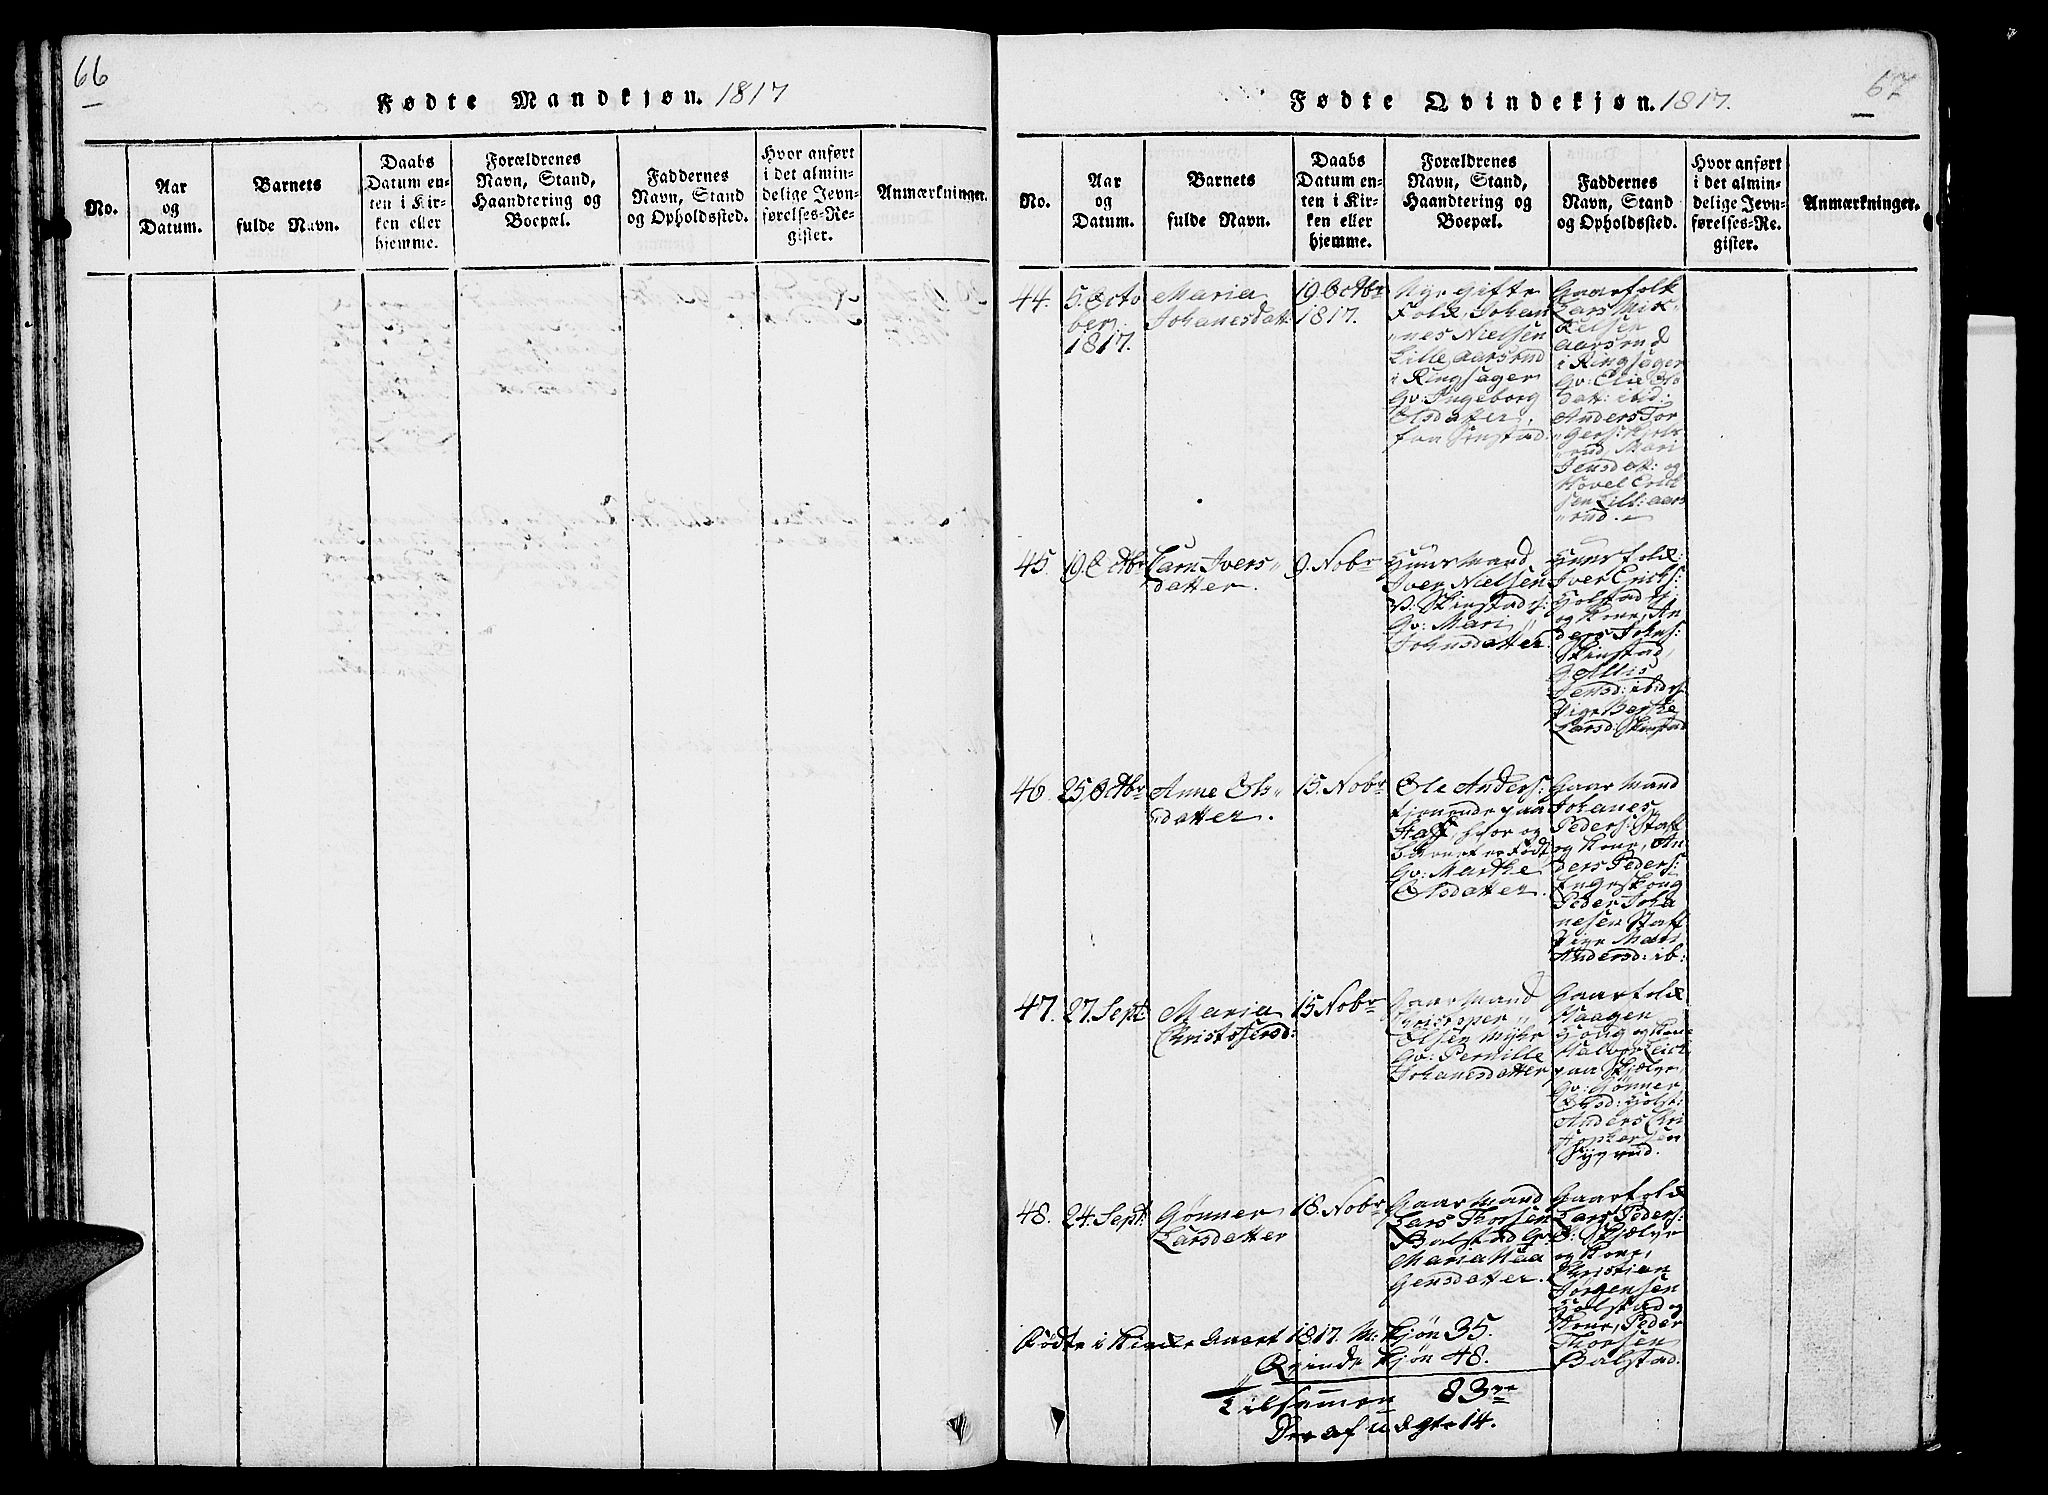 66
Fødte Mandkjøn. 1817
No.
Aar
og
Datum.
Barnets
fulde Navn.
Daabs
Datum en-
ten i Kir-
ken eller
hjemme.
Forældrenes
Navn, Stand,
Haandtering og
Boepæl.
Faddernes
Navn, Stand
og Opholdssted.
Hvor anført
i det almin-
delige Jevn-
førelses-Re-
gister.
Anmærkninger.
67
Fødte Qvindekjøn. 1817.
No.
Aar
og
Datum.
Barnets
fulde Navn.
Daabs
Datum en-
ten i Kir-
ken eller
hjemme.
Forældrenes
Navn, Stand,
Haandtering og
Boepæl.
Faddernes
Navn, Stand
og Opholdssted.
Hvor anført
i det almin-
delige Jevn-
førelses-Re-
gister.
Anmærkninger.
44.
5. Octo
ber
1817.
Maria
Johanesdatt:
19 Octbr
1817.
Nye gifte
Folk, Johan
nes Nielsen
Lille aarsrud
i Ringsager
Qv: Ingeborg
Olsdatter,
fra
Gaarfolk
Lars Mik-
kelsen
aarsrud
i Ringsager
Qv: Elie
Datt: ibid:
Anders Tor
gers:
rud, Mari
Jensdatt: og
Hovel Erik
sen Lill: aars
rud.
45.
19. Octbr
Karn Ivers-
datter.
9. Nobr
Huusmand
Iver Nielsen
Skinstad
Qv: Mari
Johnsdatter.
Huusfolk:
Iver Ericks:
Holstad
og Kone, An
ders Johns:
Skinstad,
Allis
Jensd: ibid:
Pige Berthe
Larsd: Skinstad
46.
25. Octbr
Anne Ols-
datter.
15. Nobr
Ole Anders:
tjenende paa
Staff, hvor og
barnet er Født
Qv: Marthe
Olsdatter.
Gaarmand
Johanes
Peders: Staff
og Kone, An
ders Peders:
Peder Joha
nesen Staff
Pige Mari
Andersd: ib:
47.
27. Sept:
Maria
Christofersd:
15 Nobr
Gaarmand
Christopher
Olsen Myhr
Qv: Pernille
Johanesdatter
Gaarfolk
Haagen
Houg og Kone
Halvor Erick
paa Skjelve
Qv: Gønner
Olsd: Holst:
Anders Chri
stophersen
48.
24. Sept:
Gønner
Larsdatter
18. Nobr
Gaarmand
Lars Thorsen
Balstad Qv:
Maria Haa
gensdatter.
Gaarfolk
Lars Peders:
Skjelve
og Kone,
Christian
Jørgensen
Holstad og
Kone, Peder
Thorsen
Balstad.
Fødte i Kirke Aaret 1817. M: kjøn 35.
Qvinde kjøn 48.
Tilsammen 83
Der af uægte 14.